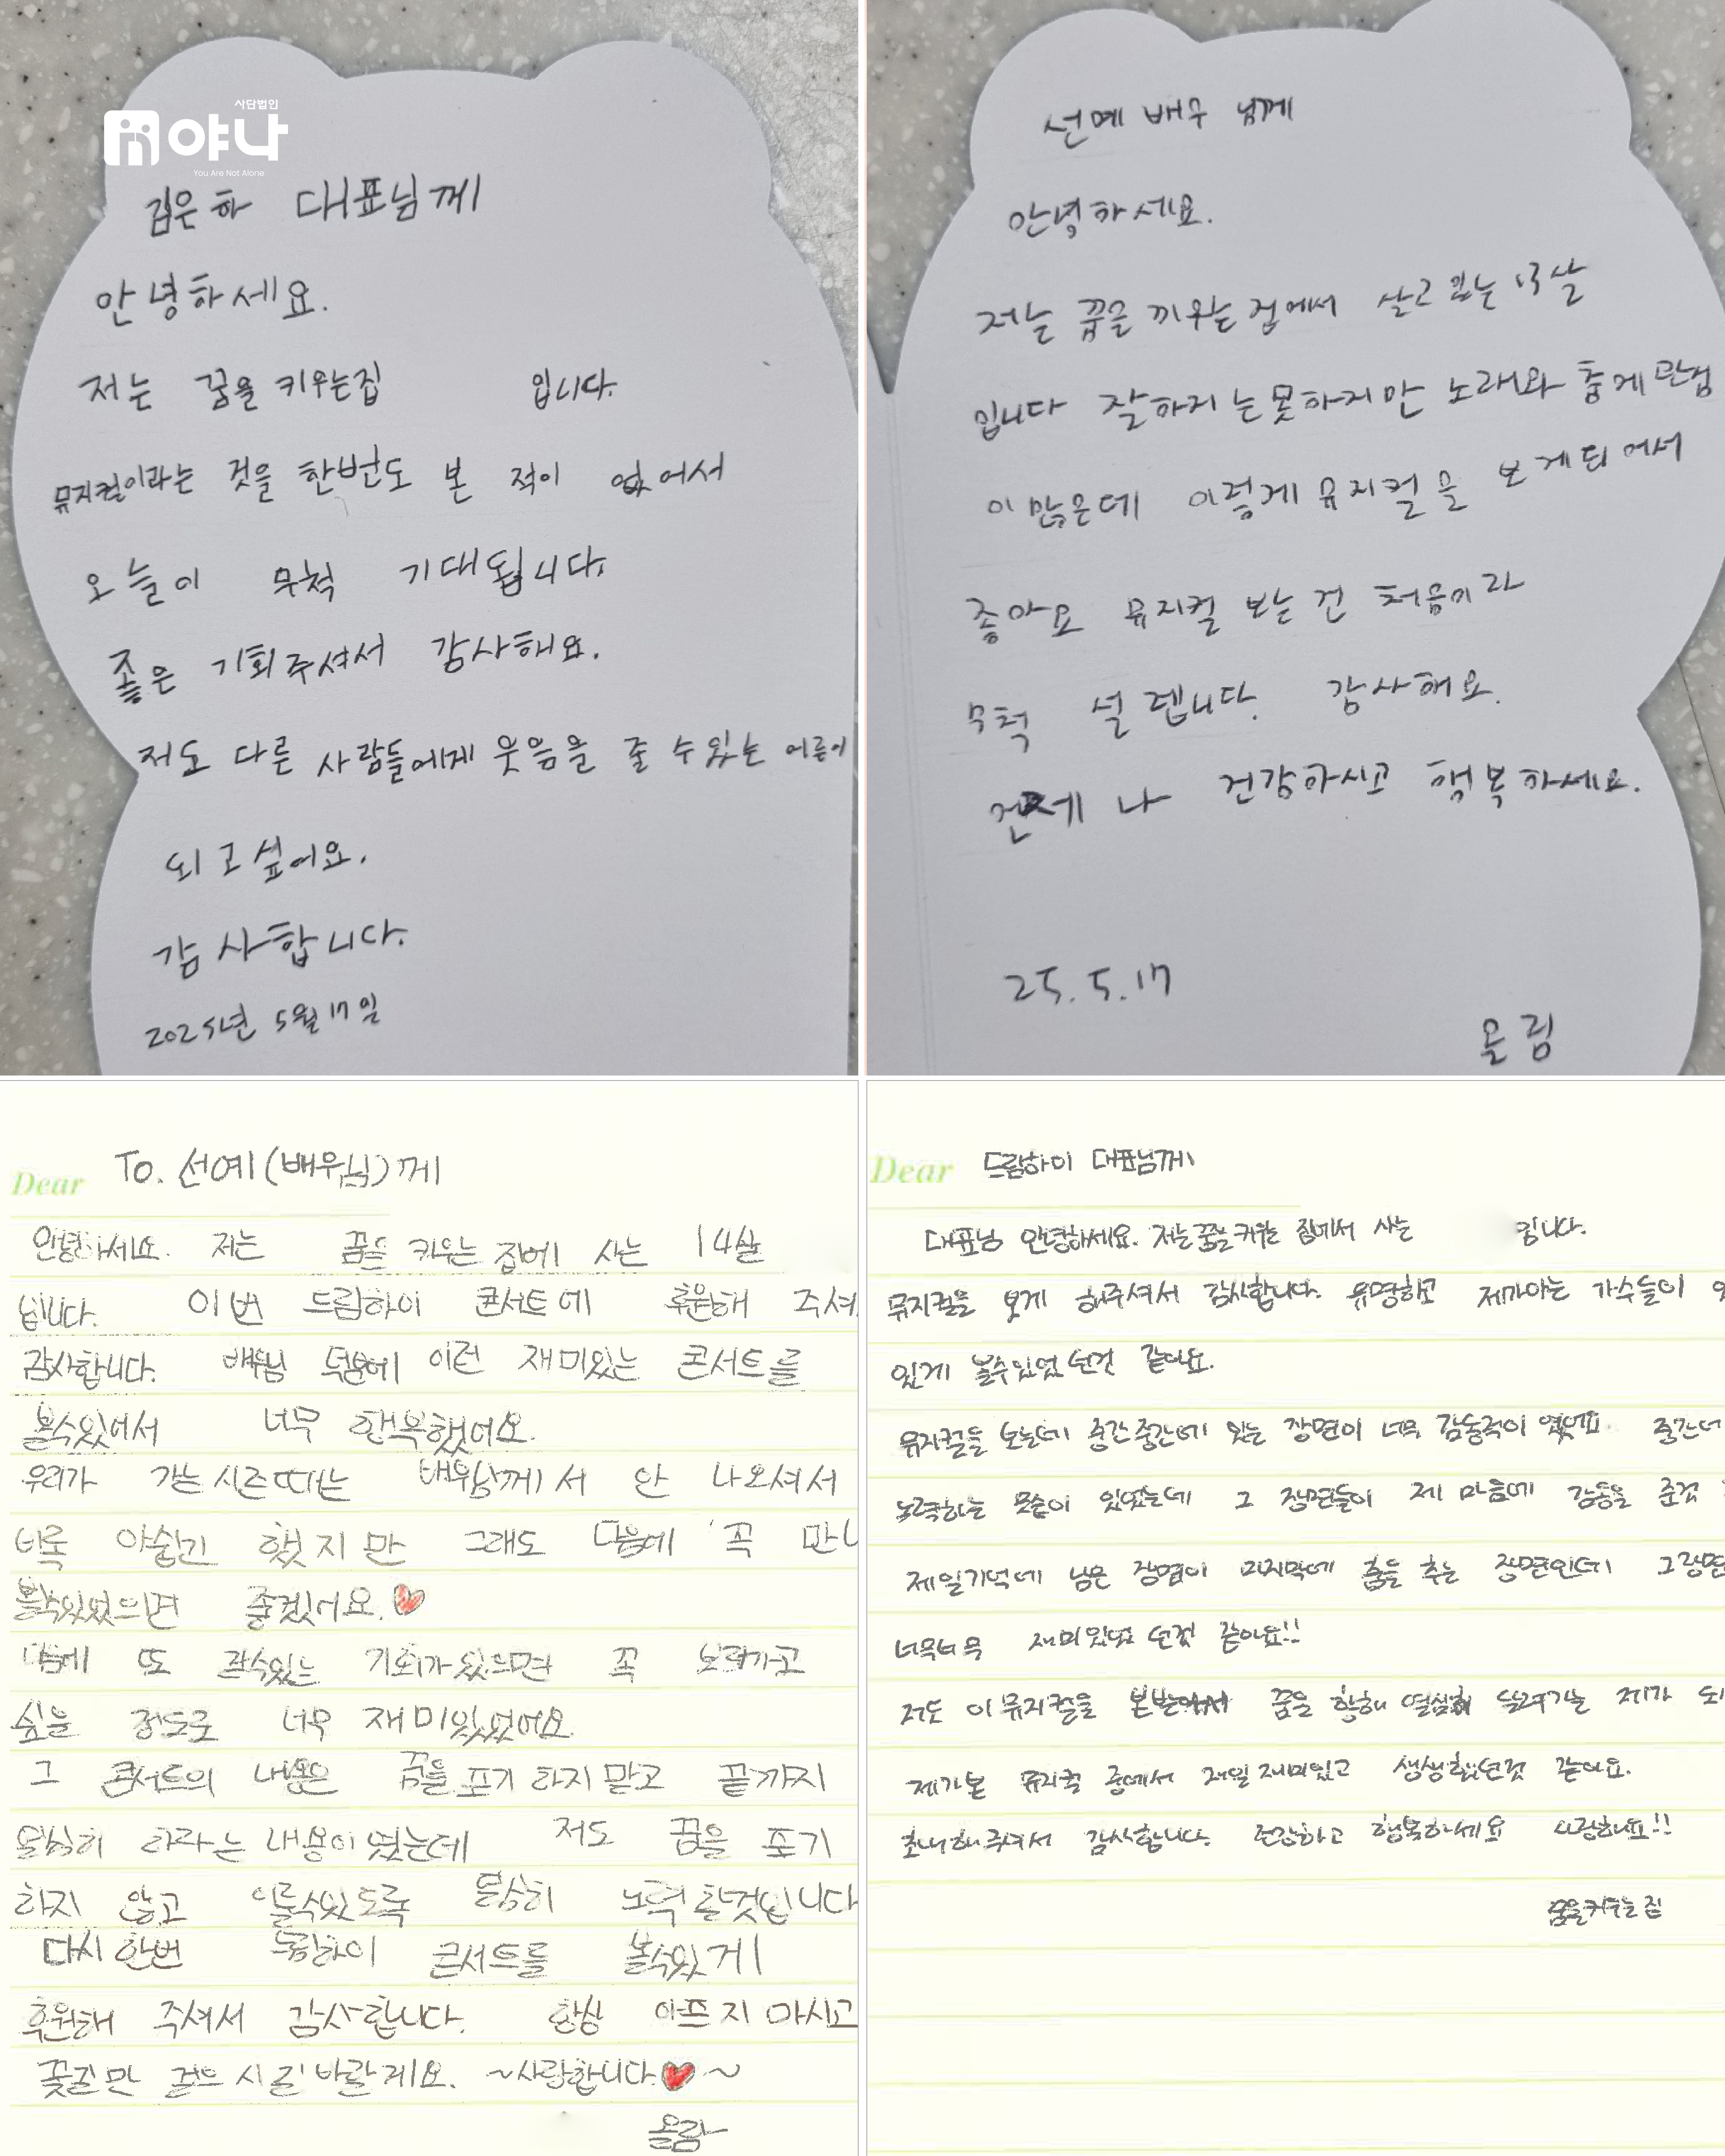 사단법인
야나
You Are Not Alone
김은하 대표님께
안녕하세요.
저는 꿈을 키우는집 입니다.
뮤지컬이라는 것을 한번도 본 적이 없어서
오늘이 무척 기대됩니다.
좋은 기회주셔서 감사해요.
저도 다른 사람들에게 웃음을 줄 수있는 어른이
되고싶어요.
감사합니다.
2025년 5월 17일
선예 배우 님께
안녕하세요.
저는 꿈을 키우는 집에서 살고 있는 13살
입니다 잘하지는못하지만 노래와 춤에 관심
이 많은데 이렇게 뮤지컬을 보게되어서
좋아요 뮤지컬 보는 건 처음이라
무척 설렙니다. 감사해요.
언제나 건강하시고 행복하세요.
25.5.17
올림
Dear To. 선예(배우님)께
안녕하세요. 저는 꿈을 키우는 집에 사는 14살
입니다. 이번 드림하이 콘서트에 후원해 주셔
감사합니다. 배우님 덕분에 이런 재미있는 콘서트를
볼수있어서 너무 행복했어요.
우리가 가는 시즌때는 배우님께서 안 나오셔서
비록 아쉽긴 했지만 그래도 다음에 꼭 만나
볼수있었으면 좋겠어요.
다음에 또 볼수있는 기회가있으면 꼭 보러가고
싶을 정도로 너무 재미있었어요.
그 콘서트의 내용은 꿈을 포기 하지말고 끝까지
열심히 하라는 내용이였는데 저도 꿈을 포기
하지 않고 이룰수있도록 열심히 노력할것입니다
다시 한번 드림하이 콘서트를 볼수있게
후원해 주셔서 감사합니다. 항상 아프지마시고
꽃길만 걸으시길 바랄게요. ~사랑합니다. ~
올림
Dear 드림하이 대표님께
대표님 안녕하세요. 저는꿈을키우는 집에서 사는 입니다.
뮤지컬을 보게 해주셔서 감사합니다. 유명하고 제가아는 가수들이
있게 볼수있었던것 같아요.
뮤지컬을 보는데 중간중간에 있는 장면이 너무 감동적이 였어요. 중간에
노력하는 모습이 있었는데 그 장면들이 제 마음에 감동을 준것
제일기억에 남은 장면이 마지막에 춤을 추는 장면인데 그장면
너무너무 재미있었던것 같아요!!
저도 이뮤지컬을 본받아서 꿈을 향해 열심히 달려가는 제가 되
제가본 뮤지컬 중에서 제일재미있고 생생했던것 같아요.
초대해주셔서 감사합니다. 건강하고 행복하세요 사랑해요!!
꿈을키우는집